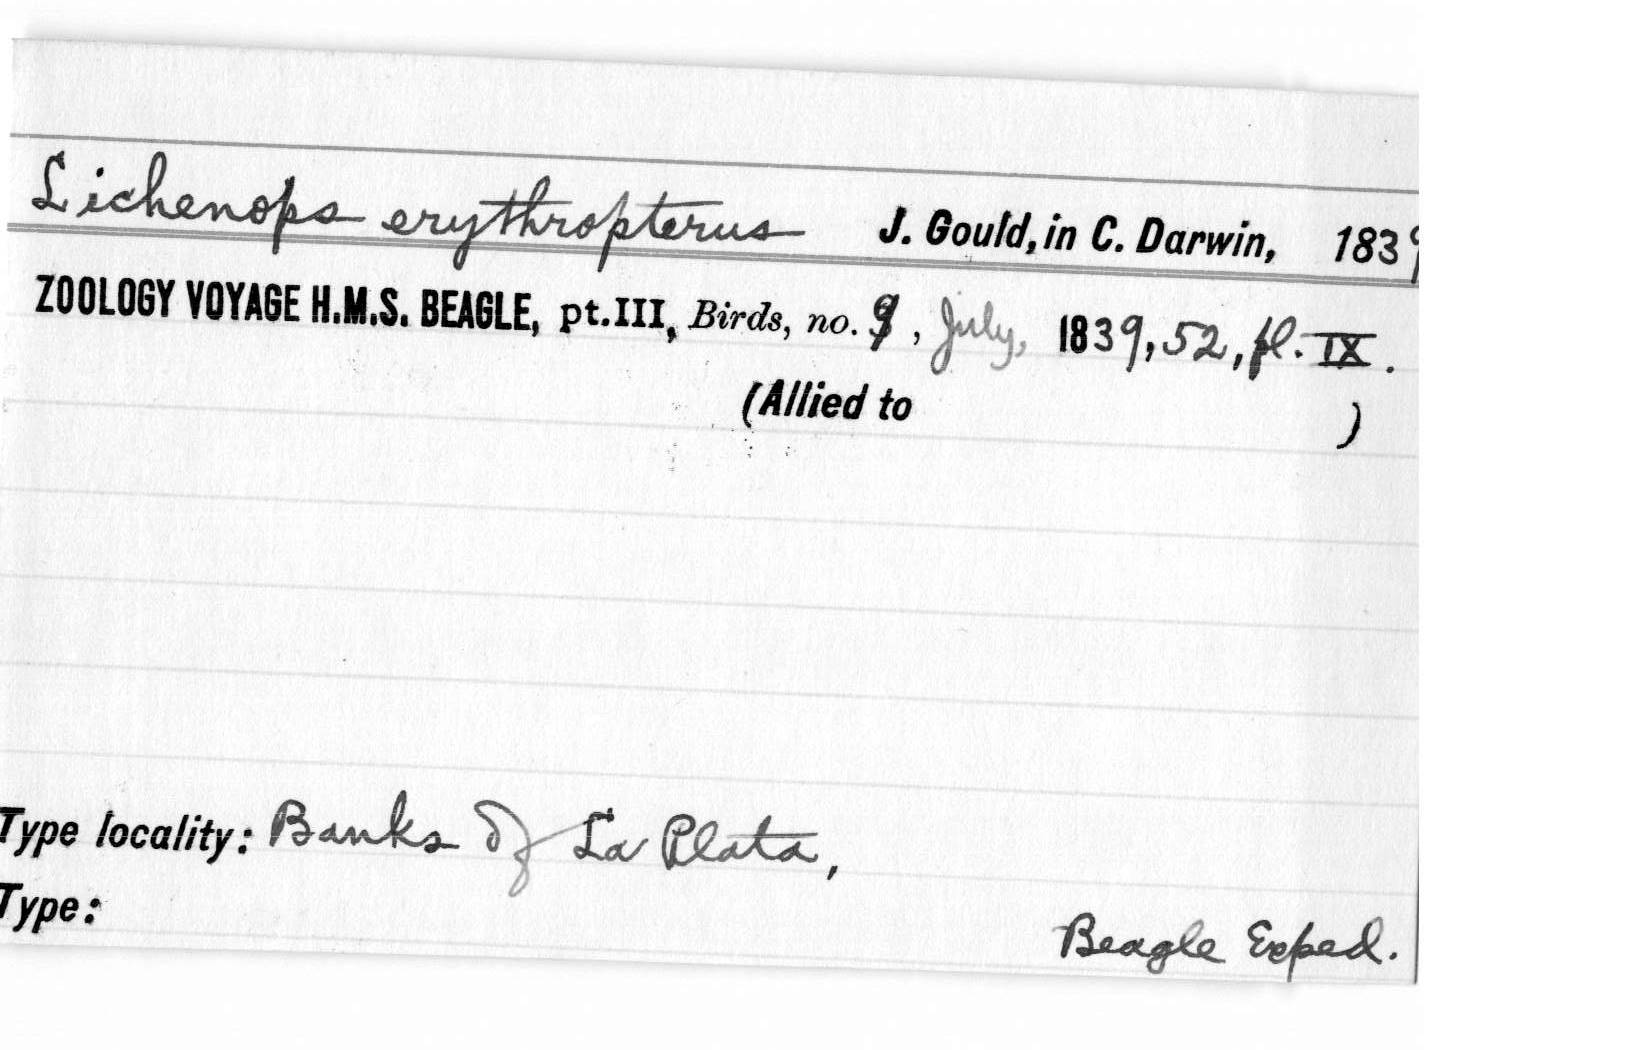 Lichenops erythropterus J. Gould, in C. Darwin, 1839
ZOOLOGY VOYAGE H.M.S. BEAGLE, pt.III, Birds, no. 9, July, 1839, 52, pl. IX.
(Allied to )
Type locality: Banks of La Plata,
Type:
Beagle Exped.